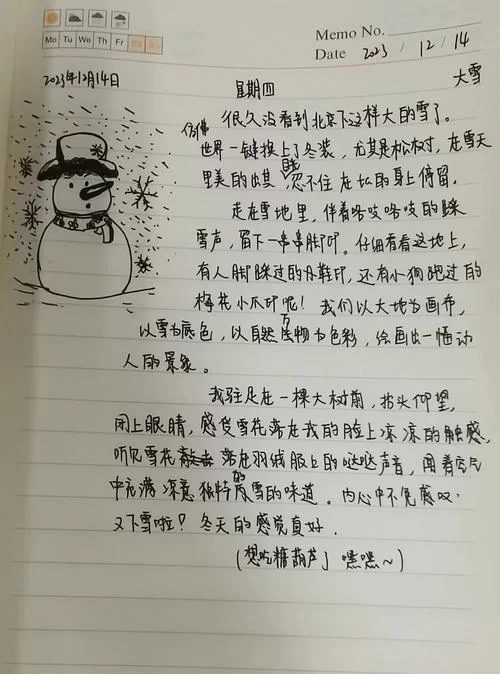 Memo No.
Mo Tu We Th Fr
Date 2023 / 12 / 14
2023年12月14日 星期四 大雪
很久没看到北京下这样大的雪了。
仿佛
世界一键换上了冬装，尤其是松树，在雪天
里美的出其，眼忍不住在它的身上停留。
走在雪地里，伴着咯吱咯吱的踩
雪声，留下一串串脚印。仔细看看这地上，
有人脚踩过的鞋印，还有小狗跑过的
梅花小爪印呢！我们以大地为画布，
以雪为底色，以自然万物为色彩，绘画出一幅动
人的景象。
我驻足在一棵大树前，抬头仰望，
闭上眼睛，感受雪花落在我的脸上凉凉的触感，
听见雪花落在羽绒服上的哒哒声音，闻着空气
中充满凉意独特的雪的味道。内心中不免感叹：
又下雪啦！冬天的感觉真好。
（想吃糖葫芦了 嘿嘿~）